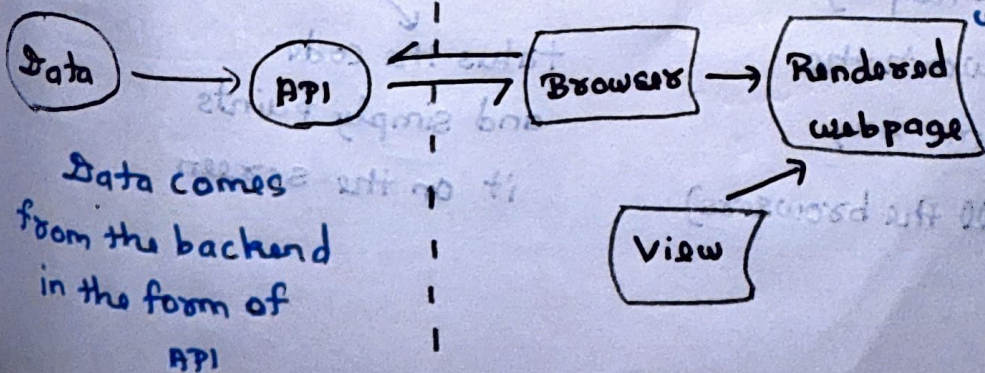 Data
API
Browser
Rendered
webpage
Data comes
from the backend
in the form of
API
View